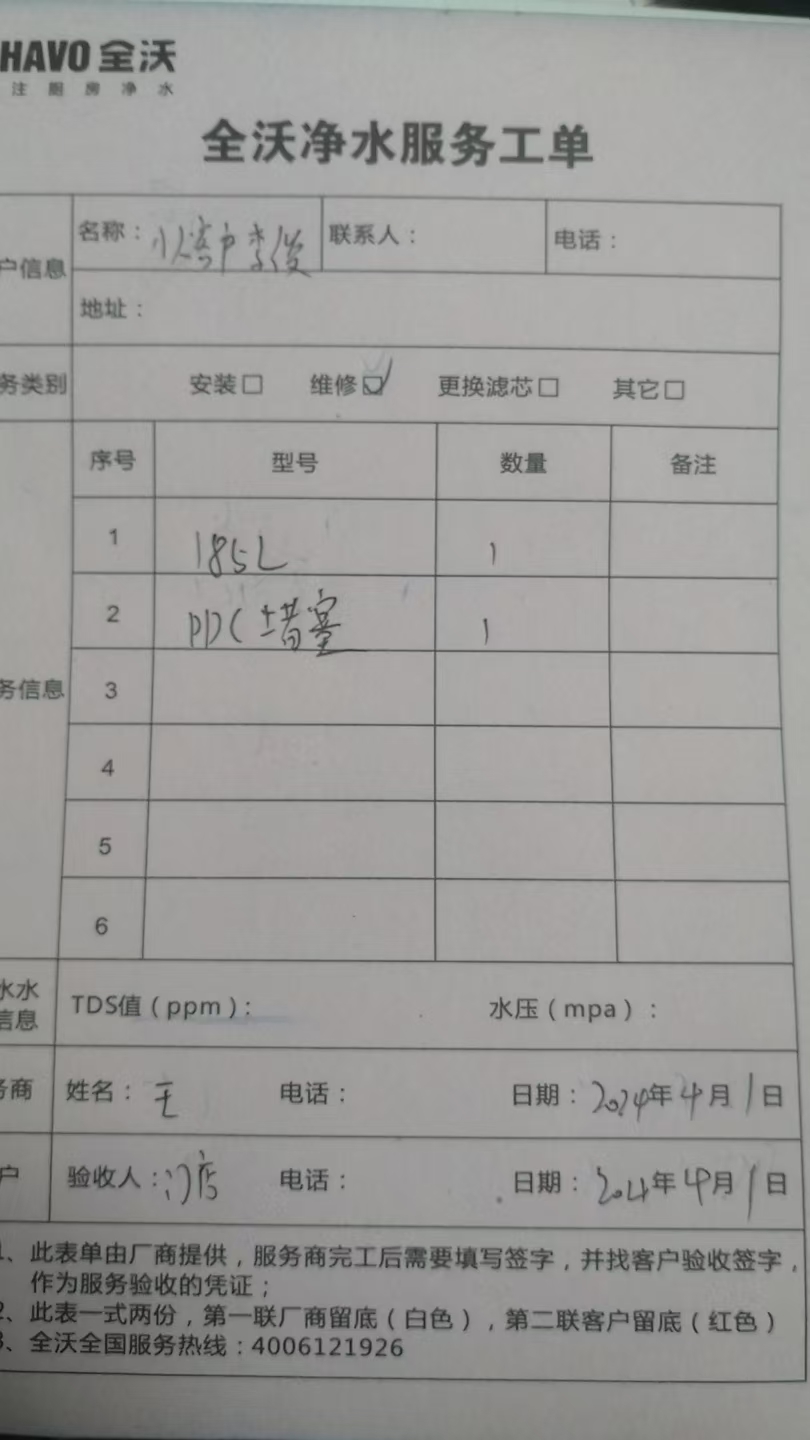 HAVO 全沃
注厨房净水
全沃净水服务工单
户信息
名称：小客户李俊
联系人：
电话：
地址：
务类别
安装□ 维修☑ 更换滤芯□ 其它□
务信息
序号 型号 数量 备注
1 185L 1
2 PDC 堵塞 1
3
4
5
6
水水
信息
TDS值（ppm）： 水压（mpa）：
务商 姓名：王 电话： 日期：2024年4月1日
户 验收人：门店 电话： 日期：2024年4月1日
1、此表单由厂商提供，服务商完工后需要填写签字，并找客户验收签字，
作为服务验收的凭证；
2、此表一式两份，第一联厂商留底（白色），第二联客户留底（红色）
3、全沃全国服务热线：4006121926